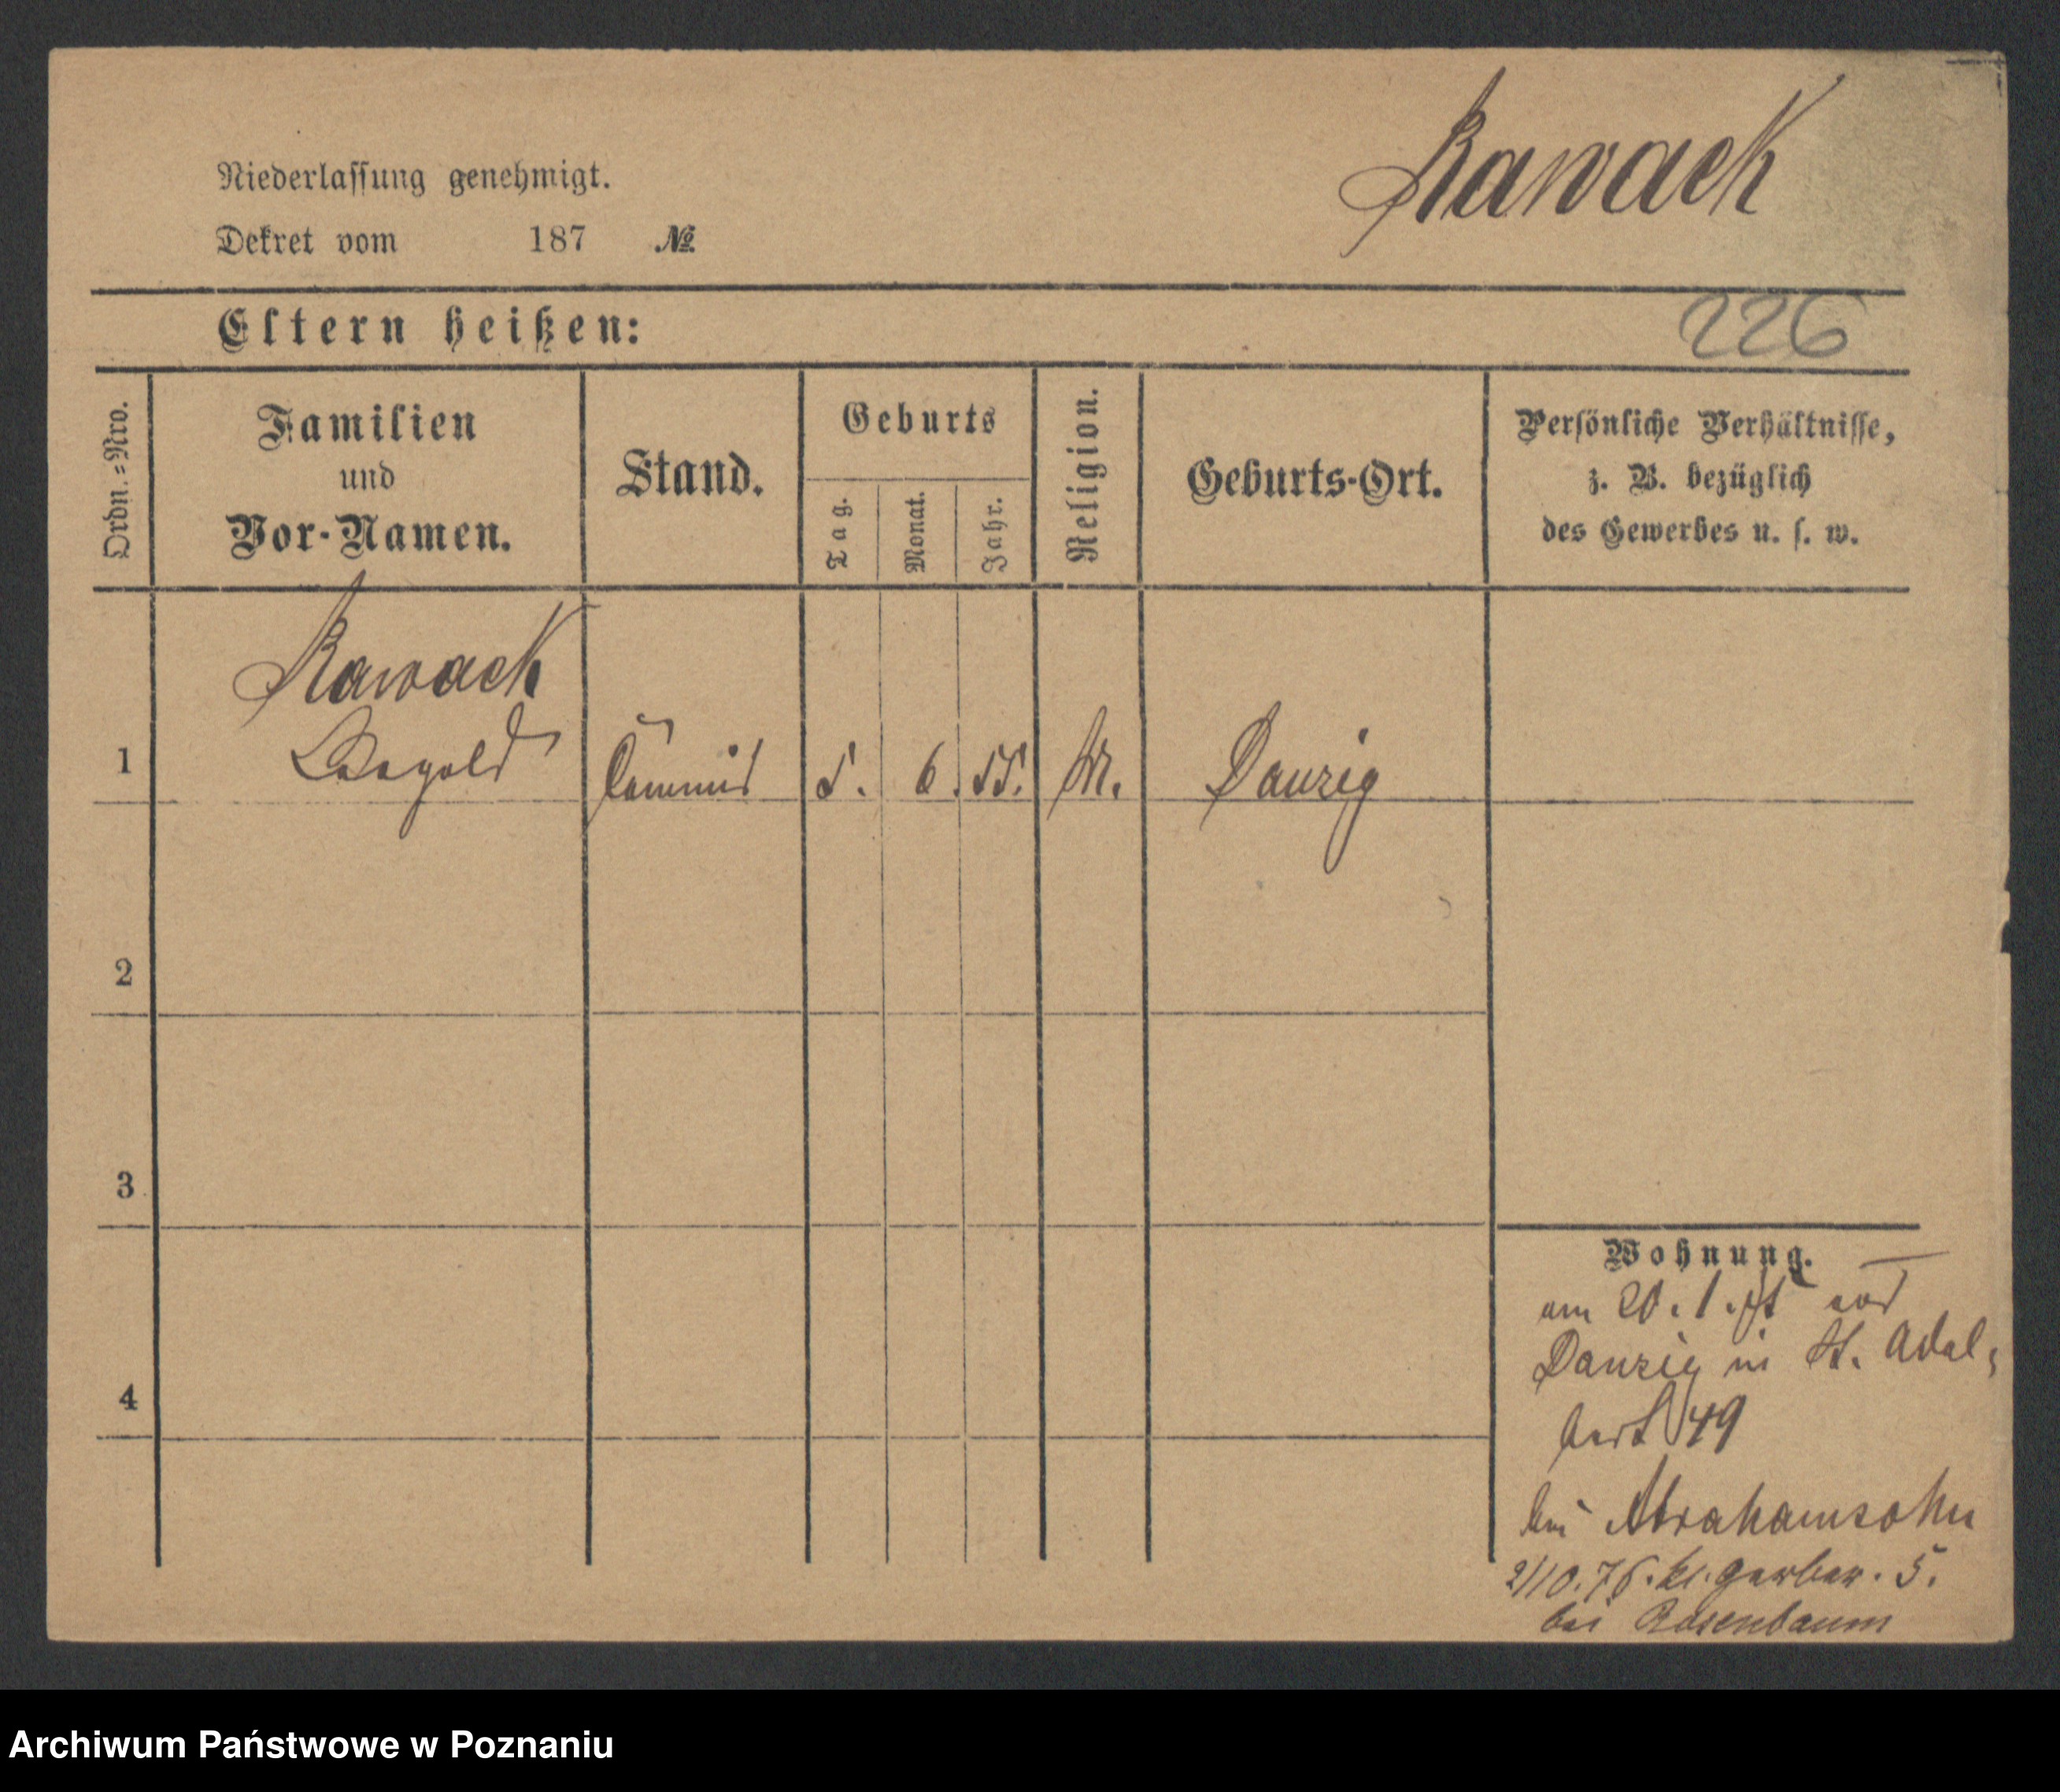 Rawack
Niederlassung genehmigt.
Dekret vom 187 №
226
Eltern heißen:
Ordn.=Nro.
Familien und Vor-Namen.
Stand.
Geburts
Tag. Monat. Jahr.
Religion.
Geburts-Ort.
Persönliche Verhältnisse,
z. B. bezüglich
des Gewerbes u. s. w.
Rawack
1 Leopold Commis 5. 6. 55. Danzig
2
3
Wohnung.
am 20. 1. aus
Danzig in St. Adal=
4
bert 49
bei Abrahamsohn
2/10. 76. kl. Gerber. 5.
bei Rosenbaum
Archiwum Państwowe w Poznaniu